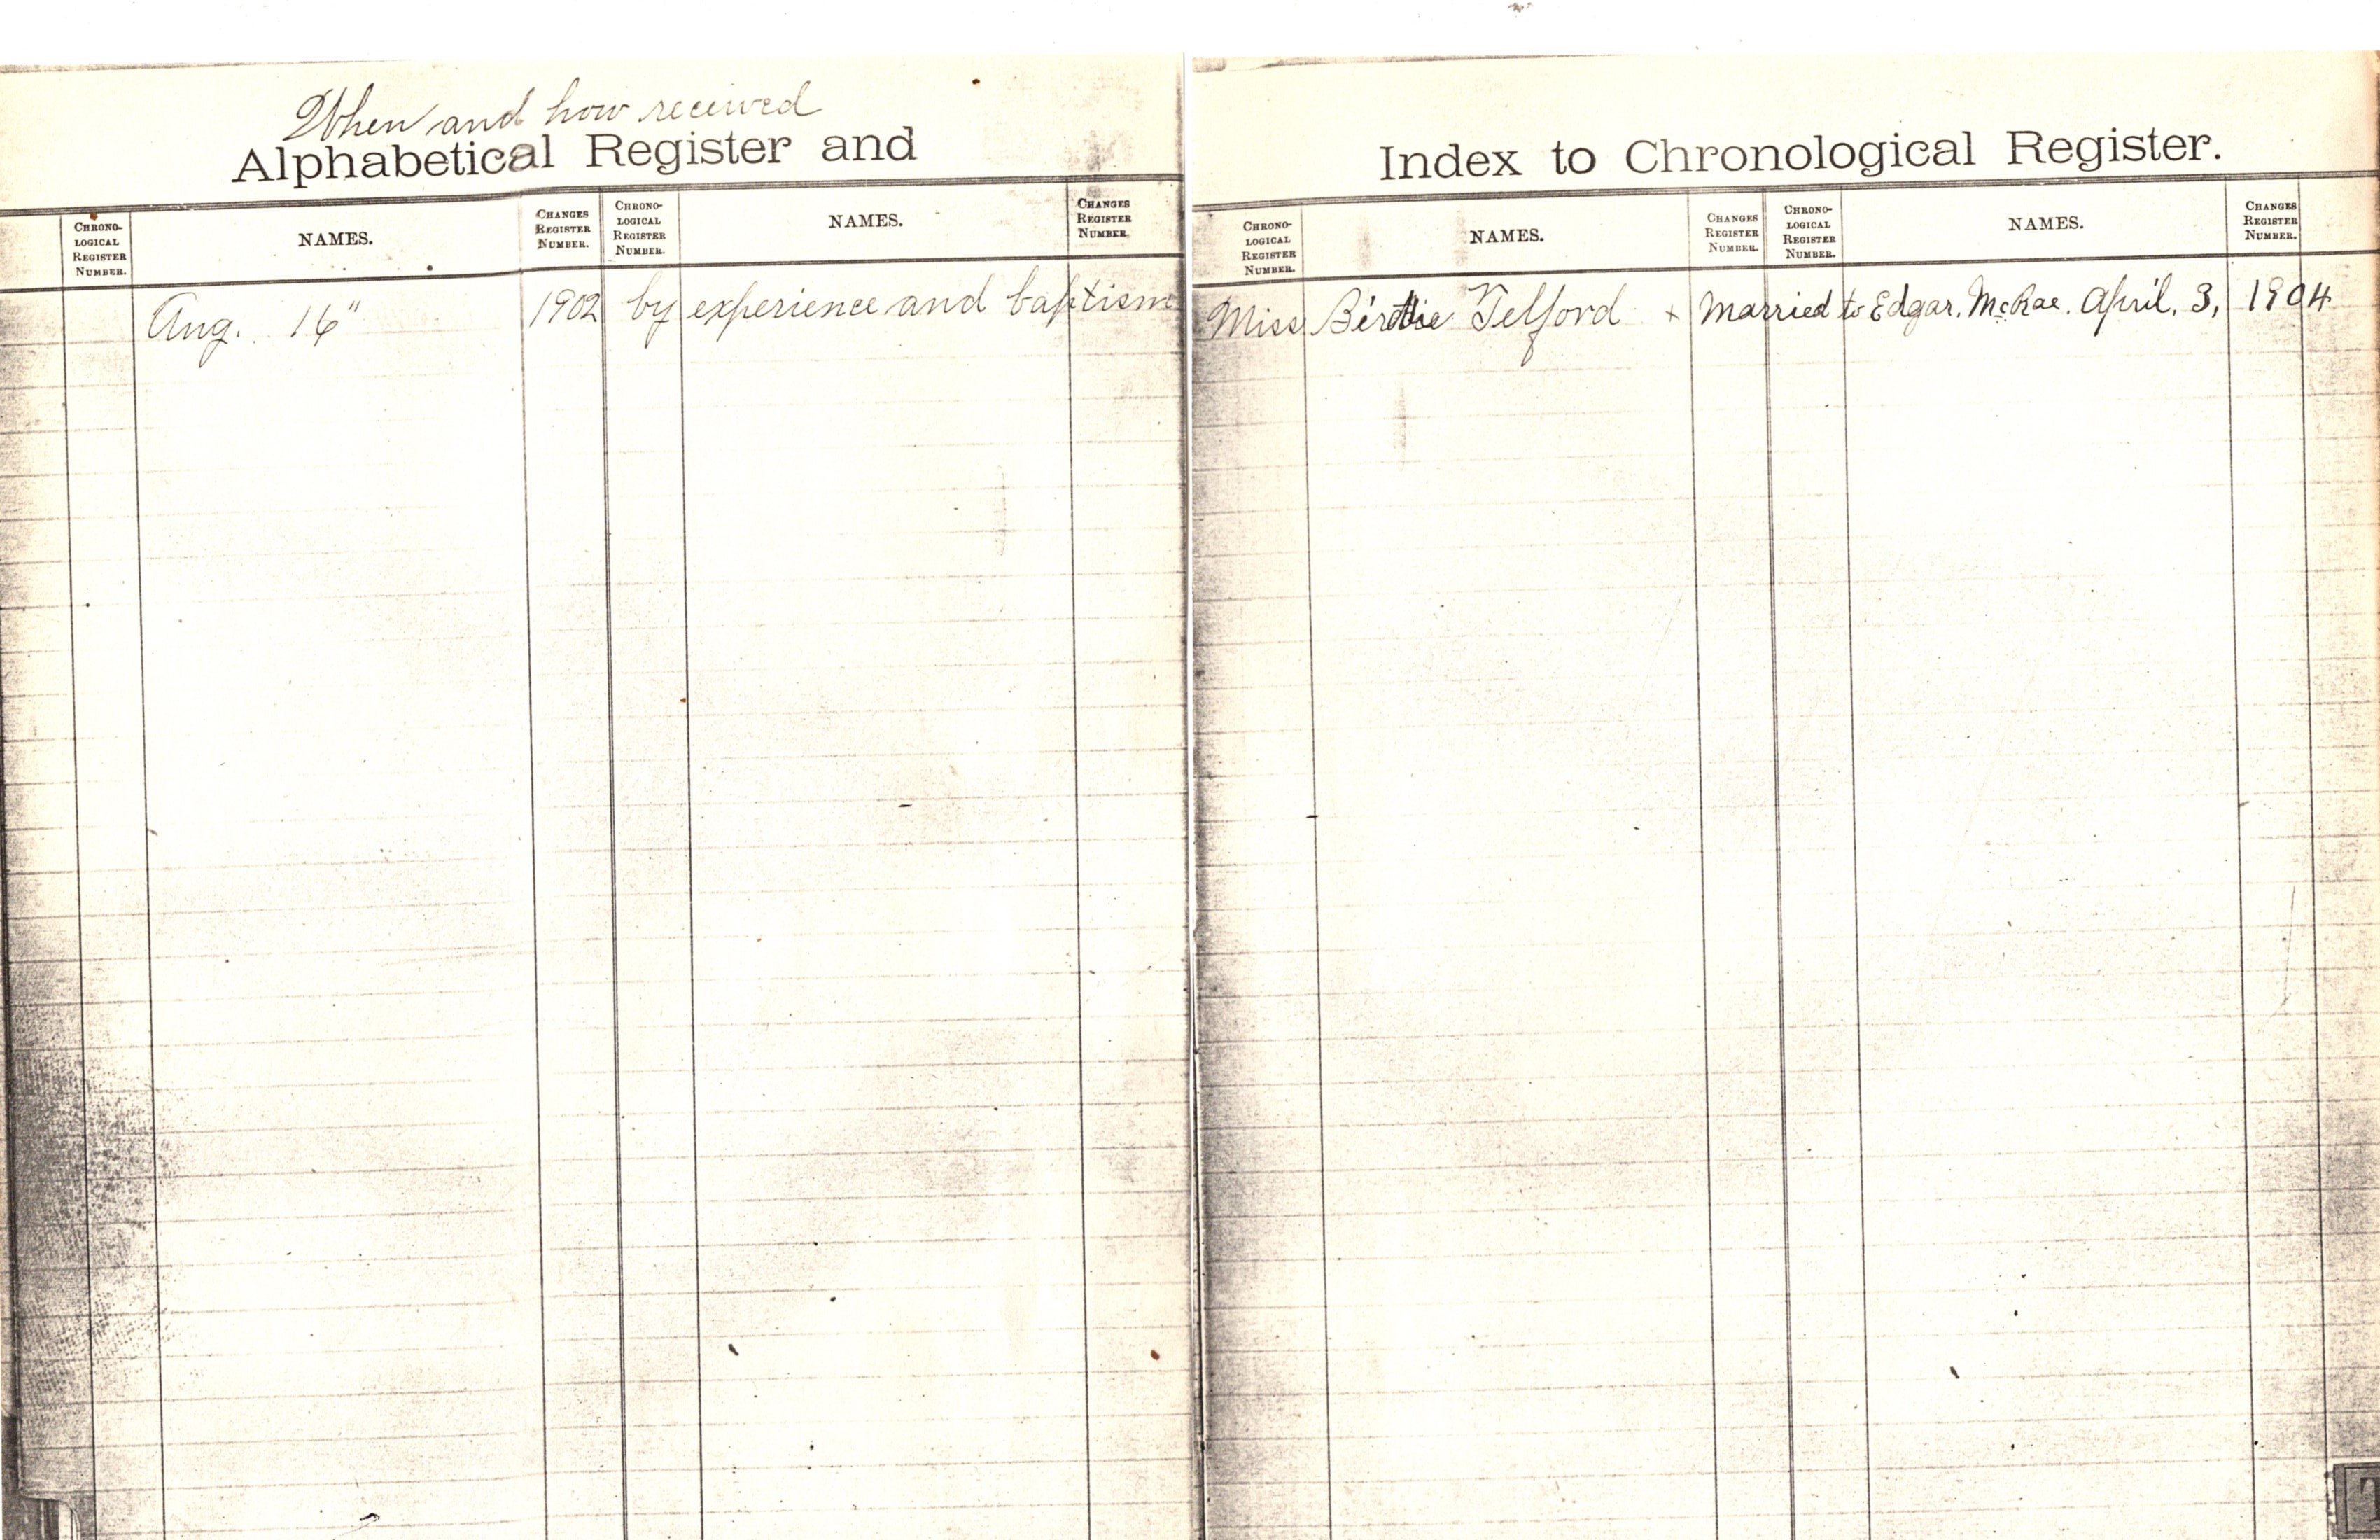 When and how received
Alphabetical Register and
Index to Chronological Register.
CHRONO-
LOGICAL
REGISTER
NUMBER.
NAMES.
CHANGES
REGISTER
NUMBER.
CHRONO-
LOGICAL
REGISTER
NUMBER.
NAMES.
CHANGES
REGISTER
NUMBER.
CHRONO-
LOGICAL
REGISTER
NUMBER.
NAMES.
CHANGES
REGISTER
NUMBER.
CHRONO-
LOGICAL
REGISTER
NUMBER.
NAMES.
CHANGES
REGISTER
NUMBER.
Aug. 16" 1902 by experience and baptism
Miss Birdie Telford x Married to Edgar. McRae. April. 3, 1904